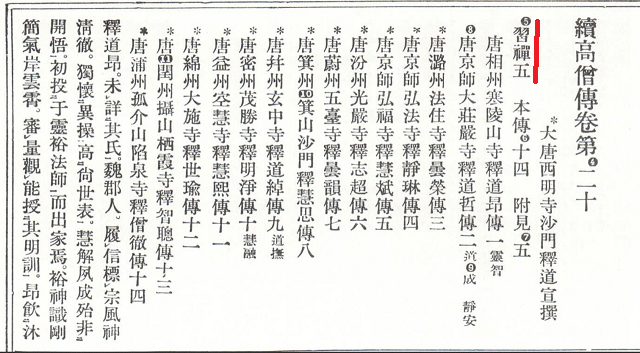 續高僧傳卷第④二十
*大唐西明寺沙門釋道宣撰
⑤習禪五 本傳⑥十四 附見⑦五
唐相州寒陵山寺釋道昂傳一靈智
⑧唐京師大莊嚴寺釋道哲傳二道⑨成 靜安
*唐潞州法住寺釋曇榮傳三
*唐京師弘法寺釋靜琳傳四
*唐京師弘福寺釋慧斌傳五
*唐汾州光嚴寺釋志超傳六
*唐蔚州五臺寺釋曇韻傳七
*唐箕州⑩箕山沙門釋慧思傳八
*唐并州玄中寺釋道綽傳九道撫
*唐密州茂勝寺釋明淨傳十慧融
*唐益州空慧寺釋慧熙傳十一
*唐綿州大施寺釋世瑜傳十二
*唐⑪閏州攝山栖霞寺釋智聰傳十三
*唐蒲州孤介山陷泉寺釋僧徹傳十四
釋道昂。未詳其氏。魏郡人。履信標宗風神
清徹。獨懷異操高尙世表。慧解夙成殆非
開悟。初投于靈裕法師而出家焉。裕神識剛
簡氣岸雲霄。審量觀能授其明訓。昂飮沐